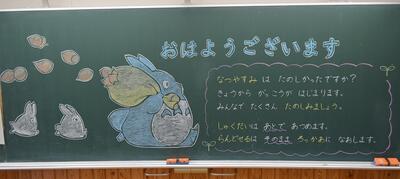 おはようございます
なつやすみ は たのしかったですか？
きょうから がっこうが はじまります。
みんなで たくさん たのしみましょう。
しゅくだいは あとで あつめます。
らんどせるは そのまま ろっかあに なおします。